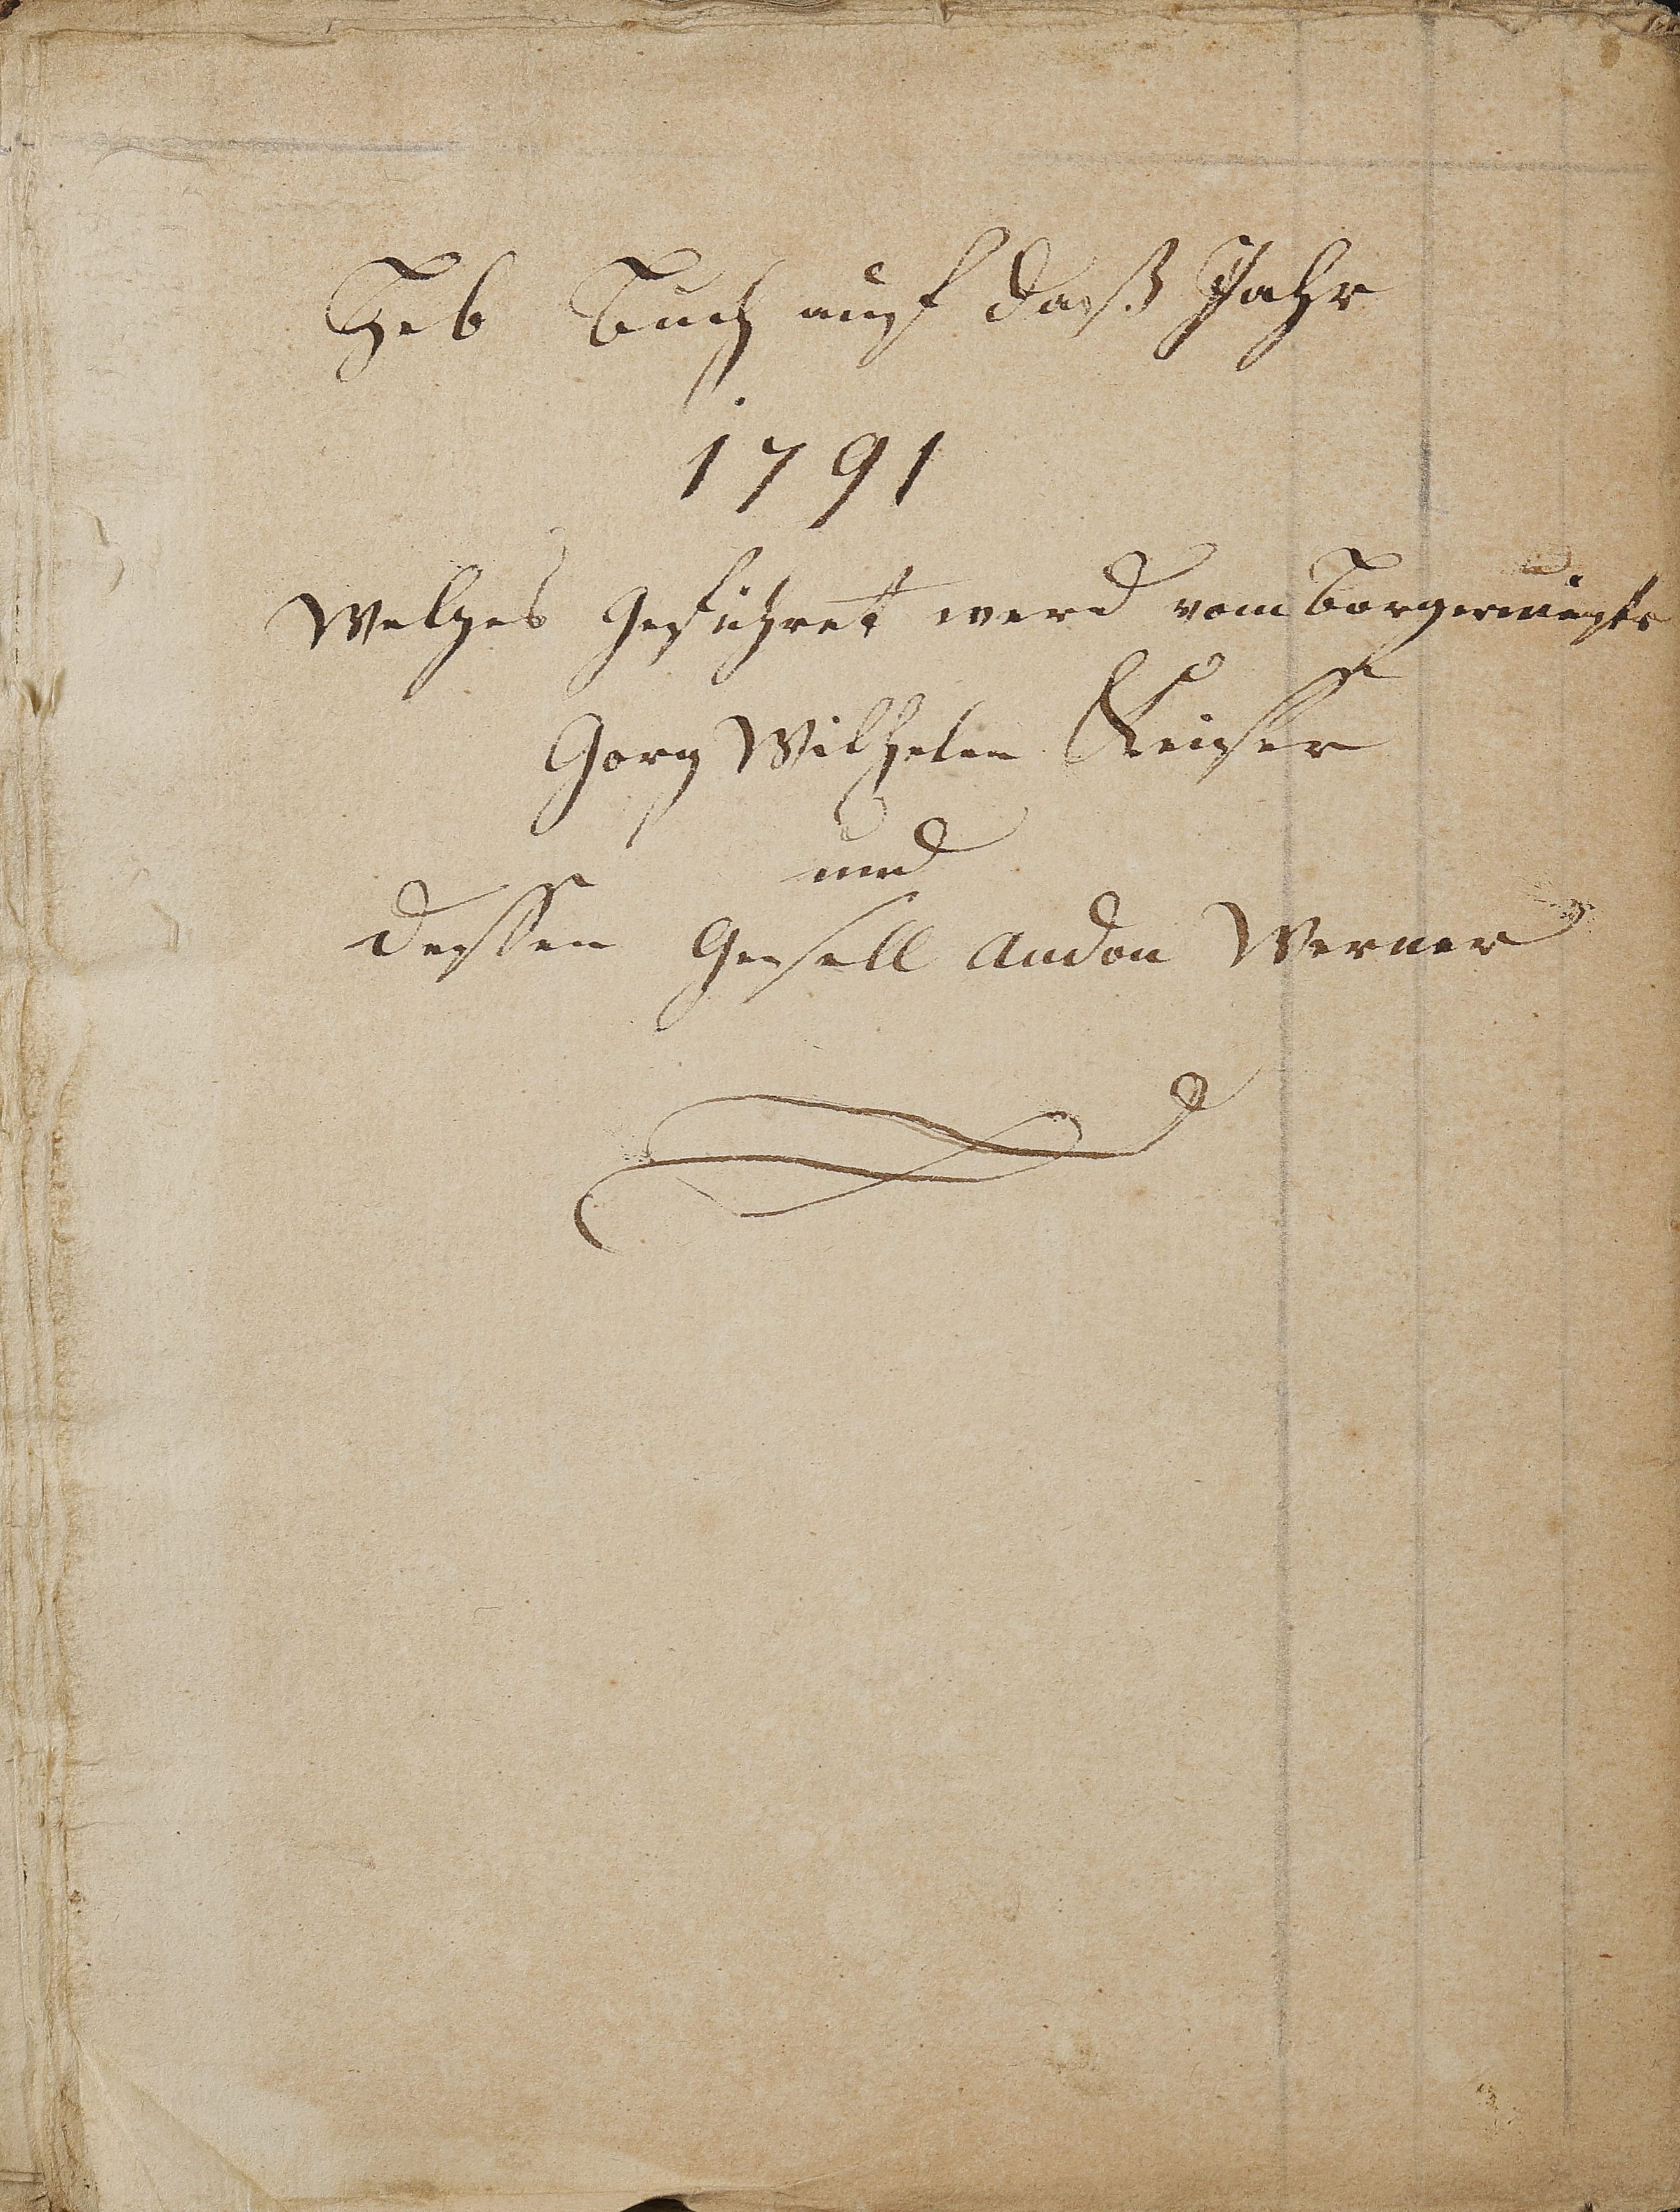 Heb Buch auf daß Jahr
1791
Welges geführet werd vom Borgermeister
Gorg Wilhelm Keiser
und
dessen Gesell Andon Werner